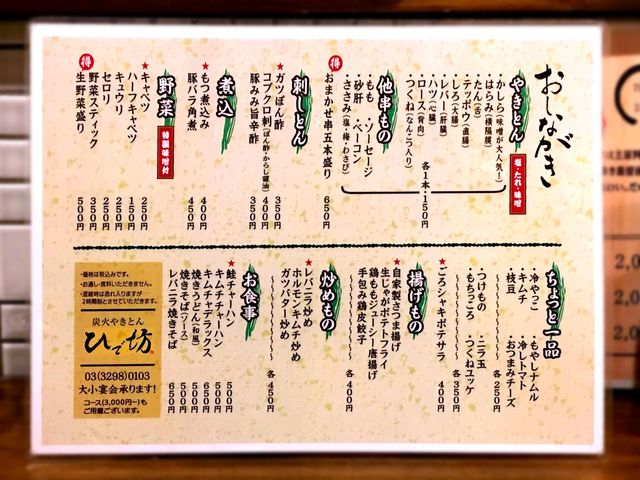 おしながき
やきとん
塩・たれ・味噌
・かしら(味噌が大人気!)
・はらみ(横隔膜)
・たん(舌)
・テッポウ(直腸)
・しろ(大腸)
・レバー(肝臓)
・ハツ(心臓)
・ロース(背肉)
・つくね(なんこつ入り)
各1本・150円
他串もの
・もも ・ソーセージ
・砂肝 ・ベーコン
・ささみ(塩・梅・わさび)
得
おまかせ串五本盛り 650円
刺しとん
★ガツぽん酢 350円
コブクロ刺(ぽん酢・からし醤油) 400円
豚みみ旨辛酢 350円
煮込
★もつ煮込み 400円
豚バラ角煮 450円
野菜
特製味噌付
★キャベツ 250円
ハーフキャベツ 150円
キュウリ 250円
セロリ 250円
野菜スティック 350円
得
生野菜盛り 500円
ちょっと一品
・冷やっこ ・もやしナムル
・キムチ ・冷しトマト
・枝豆 ・おつまみチーズ
各250円
・つけもの ・ニラ玉
・もちっころ ・つくねユッケ
各350円
★ごろシャキポテサラ 400円
揚げもの
★自家製さつま揚げ
生じゃがポテトフライ
鶏ももジューシー唐揚げ
手包み鶏皮餃子
各400円
炒めもの
★レバニラ炒め
ホルモンキムチ炒め
ガツバター炒め
各450円
お食事
★鮭チャーハン 500円
キムチチャーハン 500円
キムチャデラックス 600円
焼きうどん(和風) 550円
焼きそば(ソース) 550円
レバニラ焼きそば 650円
・価格は税込みです。
・お通し・席料いただきません。
・混雑時は恐れ入りますが
2時間制とさせていただきます。
炭火やきとん
ひで坊
03(3298)0103
大小宴会承ります!
コース(3,000円〜)も
ご用意ございます。